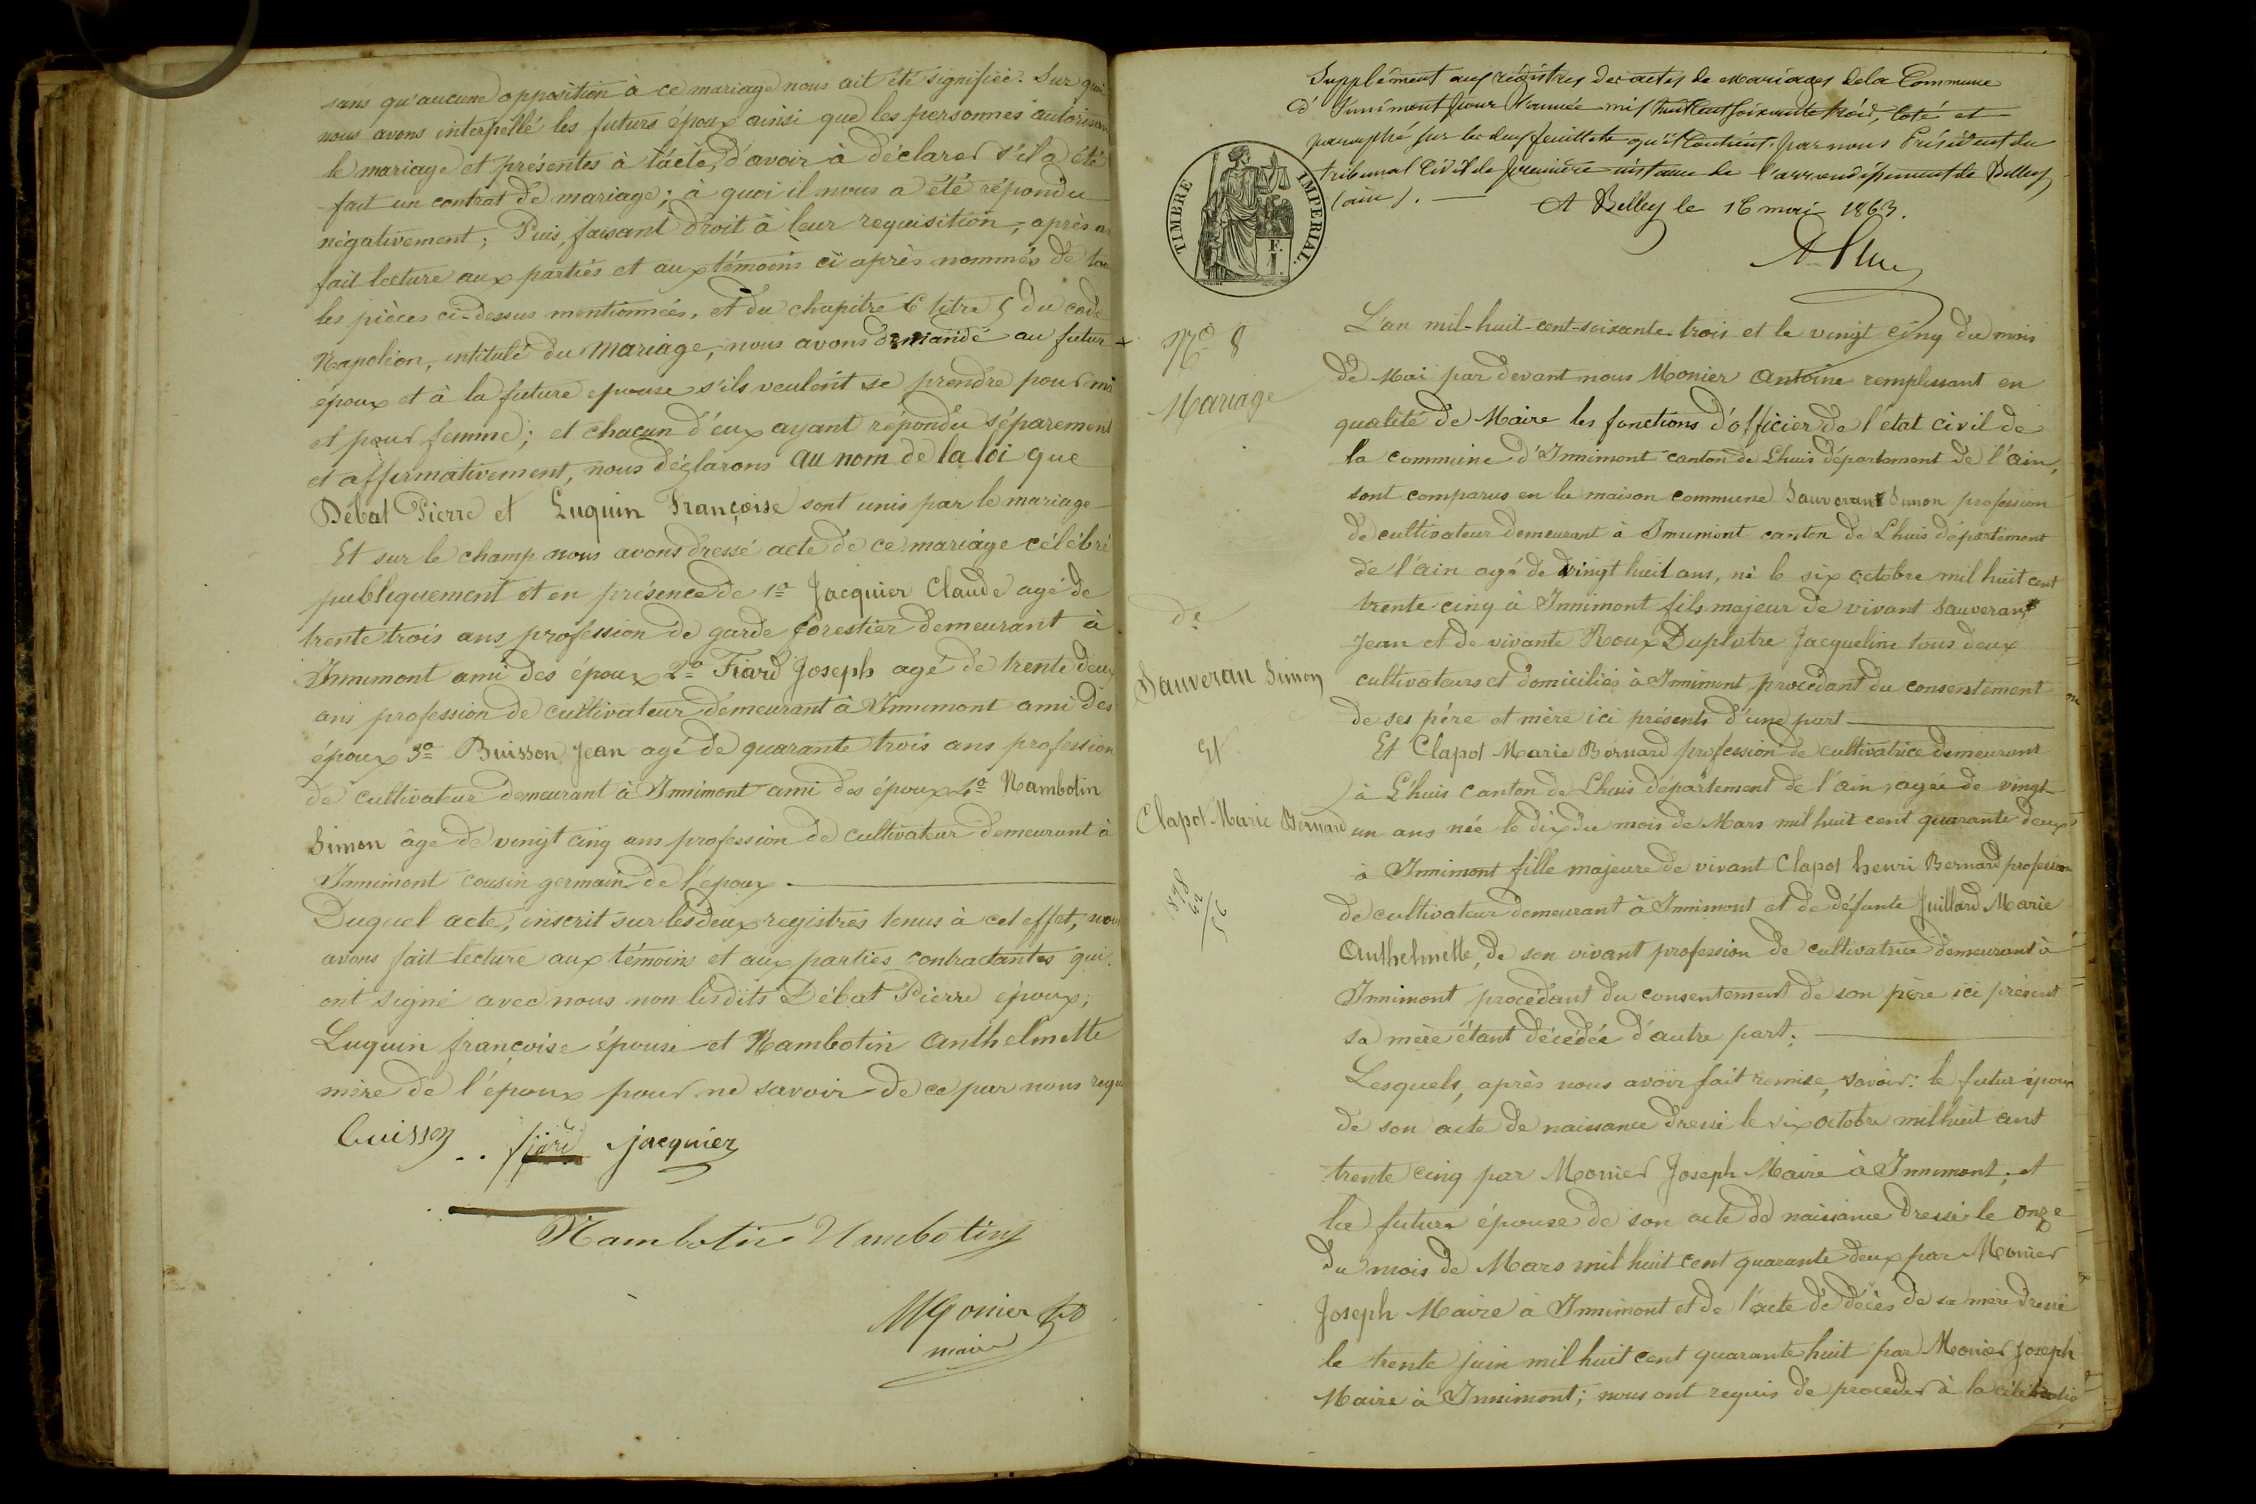 sans qu'aucune opposition à ce mariage nous ait été signifiée. Sur quoi
nous avons interpellé les futurs époux ainsi que les personnes autorisant
le mariage et présentes à l'acte, d'avoir à déclarer s'il a été
fait un contrat de mariage; à quoi il nous a été répondu
négativement; Puis, faisant droit à leur requisition, après
fait lecture aux parties et aux témoins ci après nommés de
les pièces ci-dessus mentionnées, et du chapitre 6 titre 5 du code
Napoléon, intitulé du Mariage, nous avons demandé au futur
époux et à la future epouse s'ils veulent se prendre pour
et pour femme; et chacun d'eux ayant répondu séparement
et affirmativement, nous déclarons au nom de la loi que
Débat Pierre et Luquin Françoise sont unis par le mariage
Et sur le champ nous avons dressé acte de ce mariage célébré
publiquement et en présence de 1o Jacquier Claude agé de
trente trois ans profession de garde forestier demeurant à
Innimont ami des époux 2o Fiard Joseph agé de trente deux
ans profession de cultivateur demeurant à Innimont ami des
époux 3o Buisson Jean agé de quarante trois ans profession
de cultivateur demeurant à Innimont ami des époux 4o Nambotin
Simon âgé de vingt cinq ans profession de cultivateur demeurant à
Innimont cousin germain de l'époux.
Duquel acte, inscrit sur les deux registres tenus à cet effet, nous
avons fait lecture aux témoins et aux parties contractantes qui
ont signé avec nous non lesdits Débat Pierre époux,
Luquin françoise épouse et Nambotin Anthelmette
mère de l'époux pour ne savoir de ce par nous requis
buisson fiard jacquier
Nambotin Nambotin
Monier
maire
Supplément aux registres des actes de mariages de la Commune
d'Innimont pour l'année mil huit cent soixante trois, coté et
paraphé sur les deux feuillets qu'il contient par nous Président du
tribunal civil de première instance de l'arrondissement de Belley
(ain).
A Belley le 16 mai 1863.
TIMBRE IMPERIAL.
F. I.
No 8
Mariage
de
Sauveran Simon
Et
Clapot Marie Bernard
L'an mil-huit-cent-soixante-trois et le vingt cinq du mois
de Mai par devant nous Monier Antoine remplissant en
qualité de Maire les fonctions d'officier de l'état civil de
la commune d'Innimont canton de Lhuis département de l'ain,
sont comparus en la maison commune Sauveran Simon profession
de cultivateur demeurant à Innimont canton de Lhuis département
de l'ain agé de vingt huit ans, né le six octobre mil huit cent
trente cinq à Innimont fils majeur de vivant Sauveran
Jean et de vivante Roux Duplatre Jacqueline tous deux
cultivateurs et domiciliés à Innimont procédant du consentement
de ses père et mère ici présents d'une part
Et Clapot Marie Bernard profession de cultivatrice demeurant
à Lhuis Canton de Lhuis département de l'ain, agée de vingt
un ans née le dix du mois de Mars mil huit cent quarante deux
à Innimont fille majeure de vivant Clapot henri Bernard profession
de cultivateur demeurant à Innimont et de défunte Juillard Marie
Anthelmette, de son vivant profession de cultivatrice demeurant à
Innimont procédant du consentement de son père ici présent
sa mère étant décédée d'autre part.
Lesquels, après nous avoir fait remise, savoir: le futur époux
de son acte de naissance dressé le six octobre mil huit cent
trente cinq par Monier Joseph Maire à Innimont, et
la future épouse de son acte de naissance dressé le onze
du mois de Mars mil huit cent quarante deux par Monier
Joseph Maire à Innimont et de l'acte de décès de sa mère dressé
le trente juin mil huit cent quarante huit par Monier Joseph
Maire à Innimont; nous ont requis de proceder à la célébratio